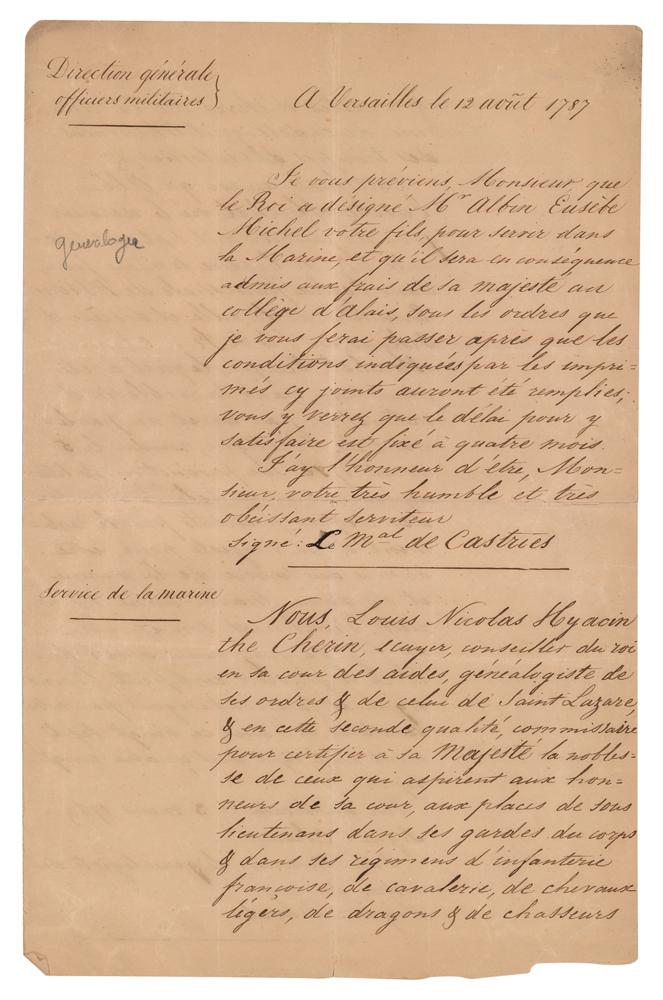 Direction générale
officiers militaires }
A Versailles le 12 août 1787
Je vous préviens, Monsieur que
le Roi a désigné Mr Albin Eusèbe
Michel votre fils, pour servir dans
la Marine, et qu'il sera en conséquence
admis aux frais de sa majesté au
collège d'Alais, sous les ordres que
je vous ferai passer après que les
conditions indiquées par les impri=
més cy joints auront été remplies;
vous y verrez que le délai pour y
satisfaire est fixé à quatre mois.
J'ay l'honneur d'être, Mon=
sieur, votre très humble et très
obéissant serviteur
signé: Le Mal de Castries
genealogie
Service de la marine
Nous, Louis Nicolas Hyacin
the Cherin, ecuyer, conseiller du roi
en sa cour des aides, généalogiste de
ses ordres & de celui de Saint Lazare,
& en cette seconde qualité, commissaire
pour certifier à sa Majesté la nobles-
se de ceux qui aspirent aux hon=
neurs de sa cour, aux places de sous
lieutenans dans ses gardes du corps
& dans ses régimens d'infanterie
françoise, de cavalerie, de chevaux
légers, de dragons & de chasseurs